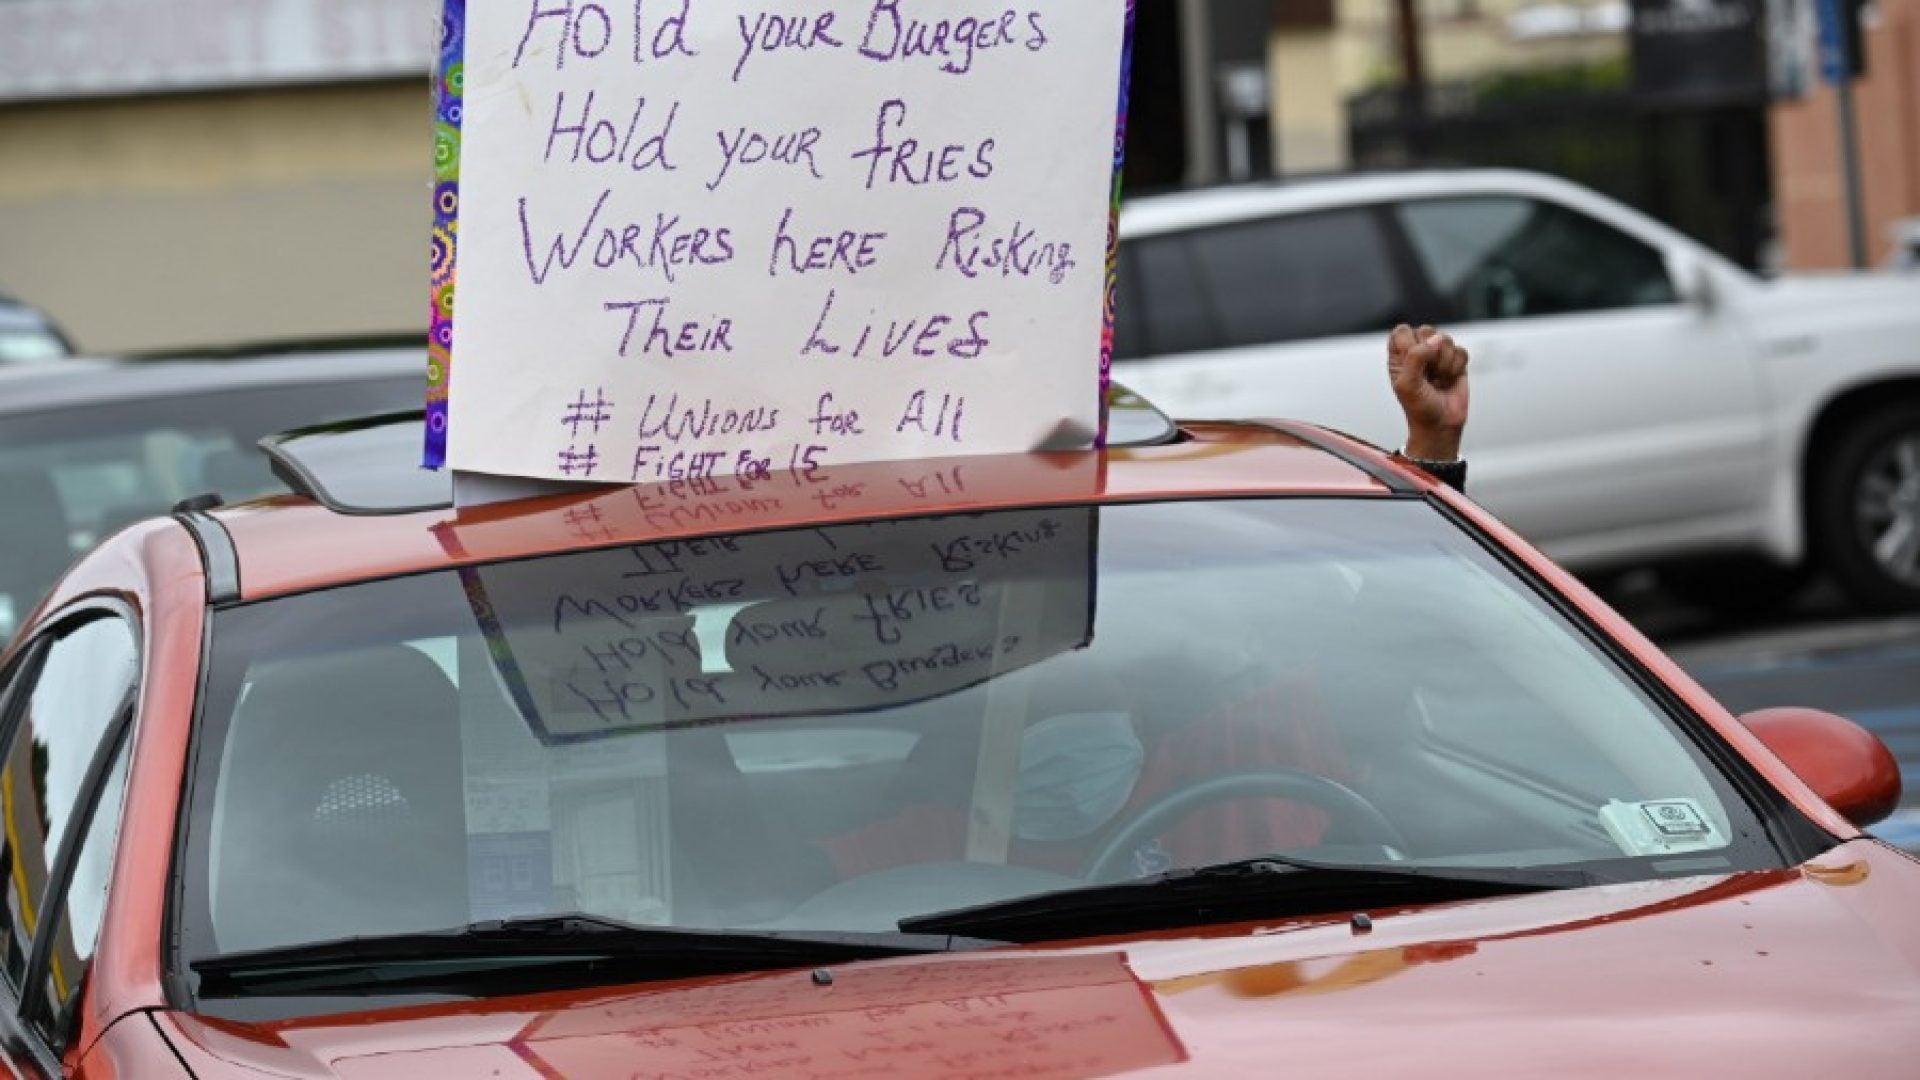 Hold your Burgers
Hold your fries
Workers here Risking
Their Lives
# Unions for All
# Fight for 15